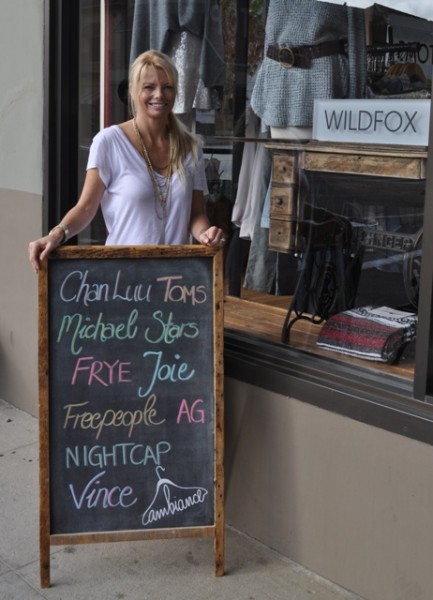 WILDFOX
SINGER
Chan Luu Toms
Michael Stars
FRYE Joie
Freepeople AG
NIGHTCAP
Vince
Cambiance